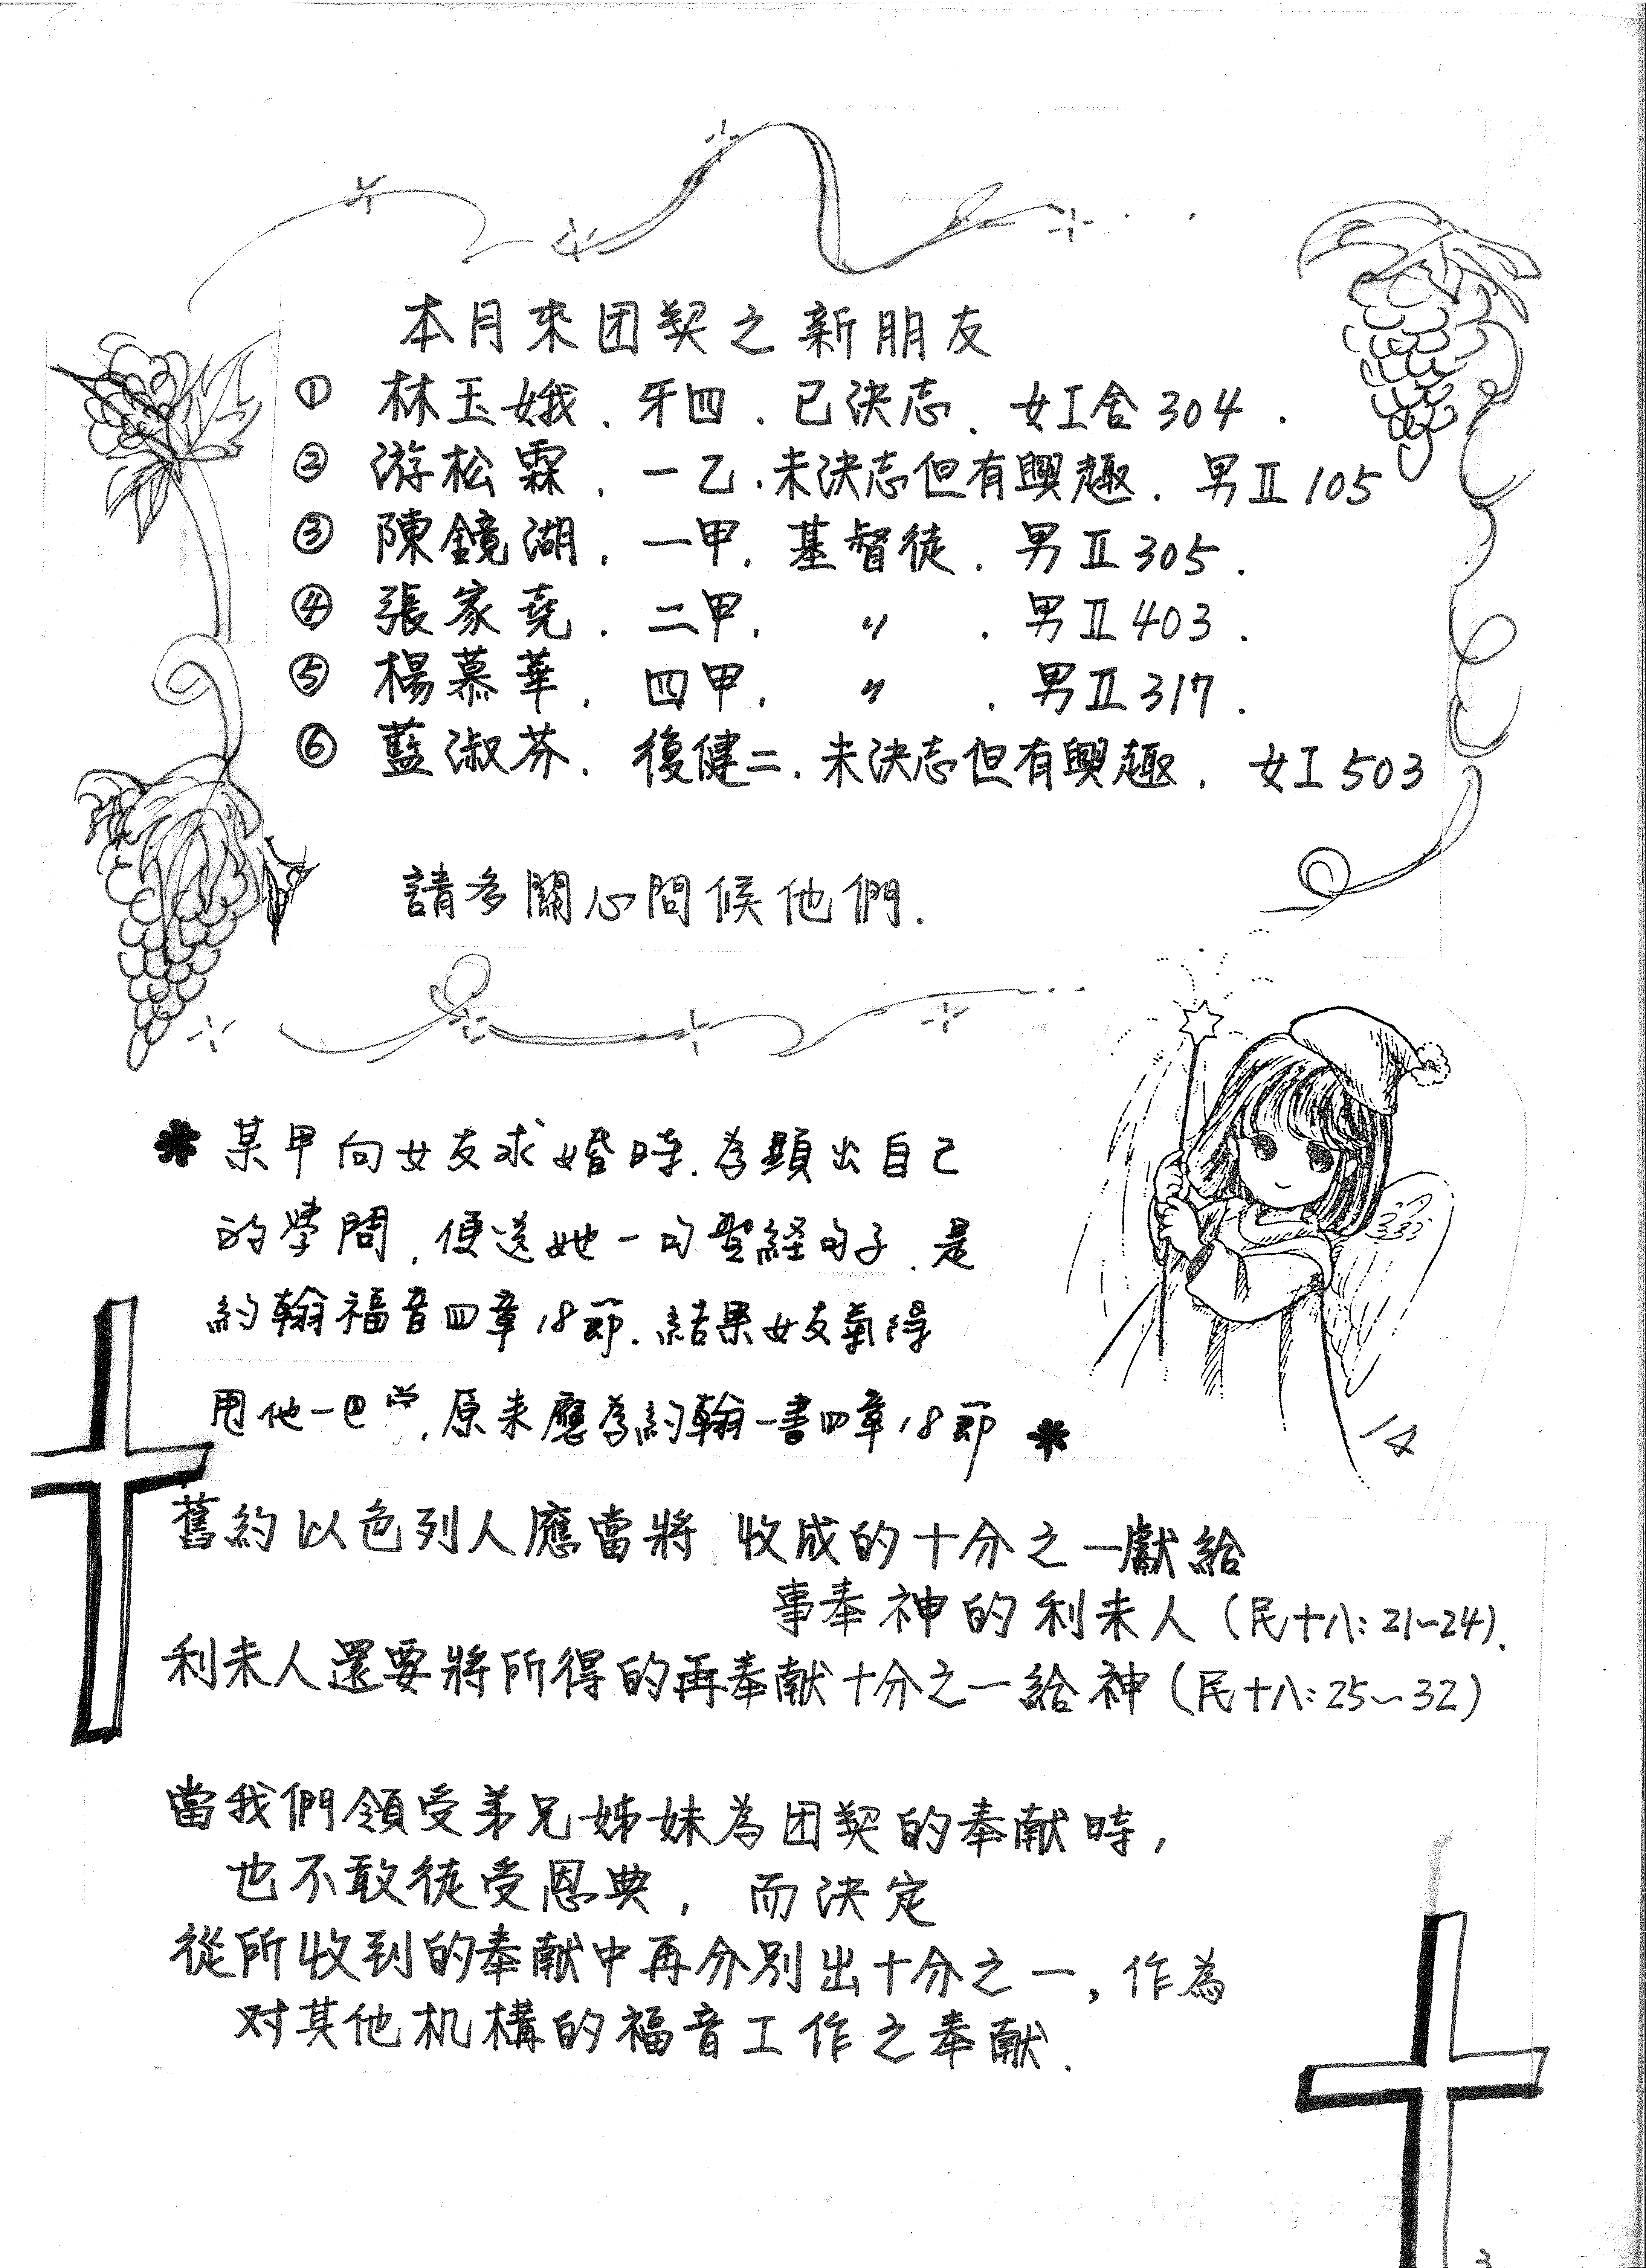 本月來团契之新朋友
① 林玉娥. 牙四. 已決志. 女I舍304.
② 游松霖. 一乙.未決志但有興趣. 男II 105
③ 陳鏡湖. 一甲. 基督徒. 男II 305.
④ 張家堯. 二甲. 〃 . 男II 403.
⑤ 楊慕華. 四甲. 〃 . 男II 317.
⑥ 藍淑芬. 復健二. 未決志但有興趣. 女I 503
請多關心問候他們.
* 某甲向女友求婚時.為顯出自己
的學問,便送她一句聖経句子.是
約翰福音四章18節.結果女友氣得
甩他一巴掌.原来應為約翰一書四章18節 *
舊約以色列人應當將 收成的十分之一獻給
事奉神的利未人(民十八:21~24).
利未人還要將所得的再奉献十分之一給神(民十八:25~32)
當我們領受弟兄姊妹為团契的奉献時,
也不敢徒受恩典, 而決定
從所收到的奉献中再分別出十分之一,作為
对其他机構的福音工作之奉献.
3